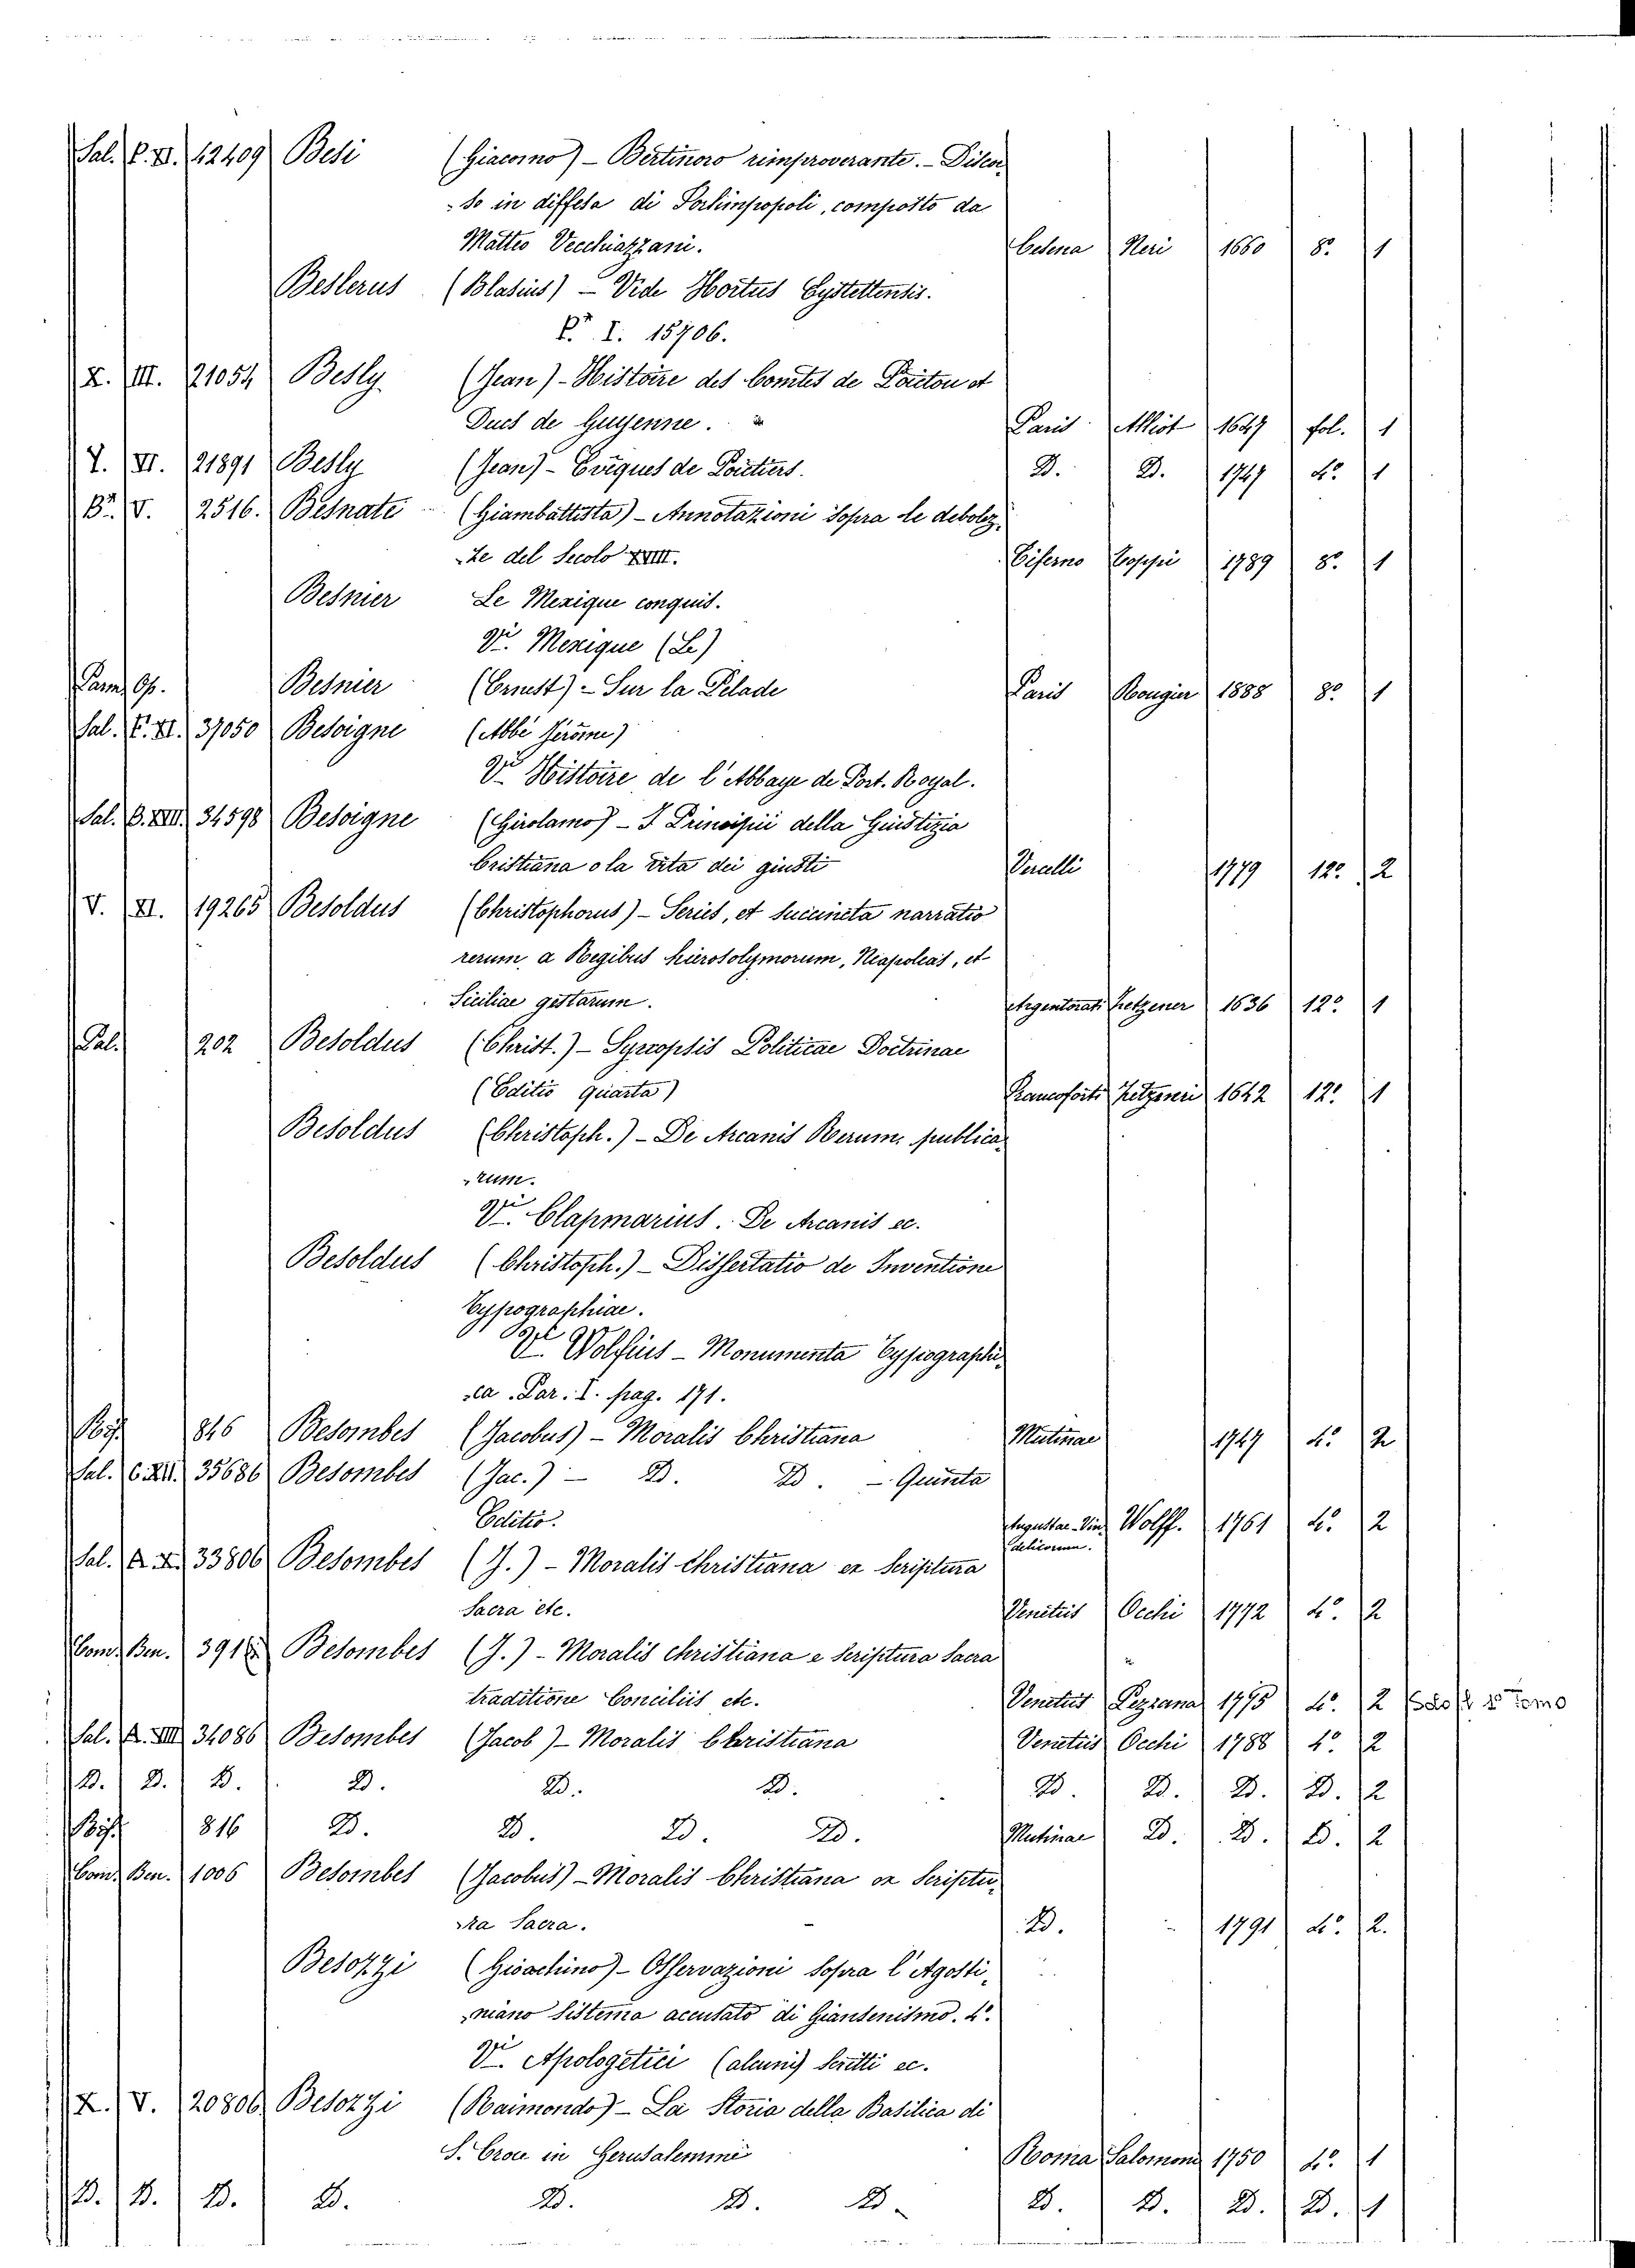 Sal. E. XI. 12409 Besi (Giacomo) - Bertinoro rimproverante. - Discor-
-so in diffesa di Forlimpopoli, composto da
Matteo Vecchiazzani. Cesena Neri 1660 8.º 1
Beslerus (Blasius) - Vide Hortus Eystettensis.
I. 15706.
X. III. 21054 Besly (Jean) - Histoire des Comtes de Poitou et
Ducs de Guyenne. Paris Alliot 1647 fol. 1
Y. VI. 21891 Besly (Jean) - Evêques de Poitiers. D. D. 1747 4.º 1
V. 2516. Besnate (Giambattista) - Annotazioni sopra le debolez-
-ze del Secolo XVIII. Eiferno Coppi 1789 8.º 1
Besnier Le Mexique conquis.
V. Mexique (Le)
Besnier (Ernest) - Sur la Pelade Paris Rougier 1888 8.º 1
Sal. E. XI. 37050 Besoigne (Abbé Jérôme)
V. Histoire de l'Abbaye de Port-Royal.
Sal. B. XIII. 34598 Besoigne (Girolamo) - I Principii della Giustizia
Cristiana o la vita dei giusti 1779 12.º 2
V. XI. 19265 Besoldus (Christophorus) - Series, et succincta narratio
rerum a Regibus hierosolymorum, Neapoleos, et
Siciliae gestarum. Argentorati Zetzener 1636 12.º 1
Pal. 202 Besoldus (Christ.) - Synopsis Politicae Doctrinae
(Editio quarta) Francoforti Zetzneri 1642 12.º 1
Besoldus (Christoph.) - De Arcanis Rerum publica-
-rum.
V. Clapmarius. De Arcanis ec.
Besoldus (Christoph.) - Dissertatio de Inventione
Typographiae.
V. Wolfius - Monumenta Typographi-
-ca. Par. I. pag. 171.
846 Besombes (Jacobus) - Moralis Christiana Mutinae 1747 4.º 2
Sal. C. XII. 35686 Besombes (Jac.) - D. D. - Quinta
Editio. Augustae-Vin-
delicorum. Wolff. 1761 4.º 2
Sal. 33806 Besombes (J.) - Moralis christiana ex scriptura
sacra etc. Venetiis Occhi 1772 4.º 2
Com. Ben. 391 Besombes (J.) - Moralis christiana e scriptura sacra
traditione Conciliis etc. Venetiis Pezzana 1775 4.º 2 Tomo
Sal. 34086 Besombes (Jacob) - Moralis Christiana Venetiis Occhi 1788 4.º 2
D. D. D. D. D. D. D. D. D. D. 2
816 D. D. D. D. Mutinae D. D. D. 2
Com. Ben. 1006 Besombes (Jacobus) - Moralis Christiana ex Scriptu-
-ra Sacra. D. 1791 4.º 2.
Besozzi (Gioachino) - Osservazioni sopra l'Agosti-
-niano sistema accusato di Giansenismo. 4.º
V. Apologetici (alcuni) scritti ec.
X. V. 20806 Besozzi (Raimondo) - La Storia della Basilica di
S. Croce in Gerusalemme Roma Salomoni 1750 4.º 1
D. D. D. D. D. D. D. D. D. D. D. 1